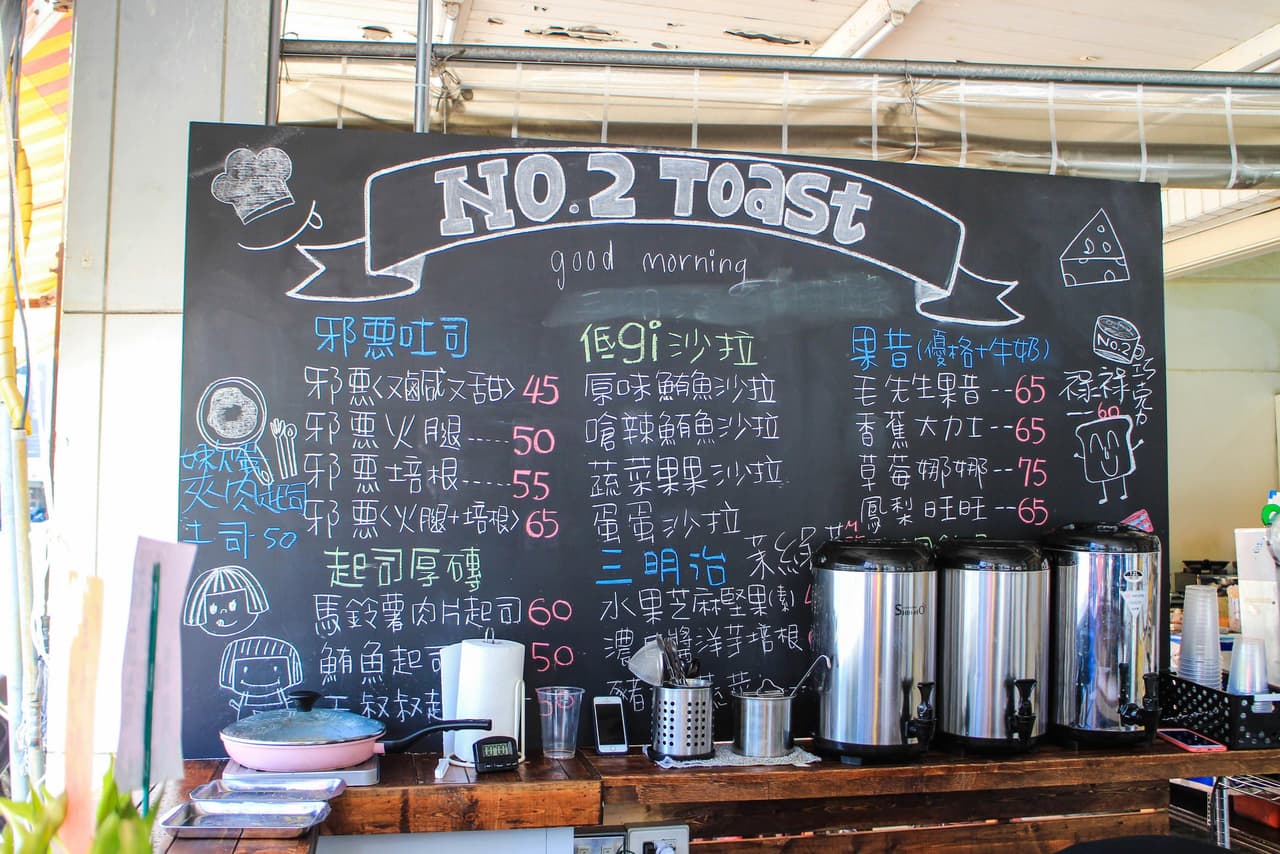 NO.2 Toast
good morning
邪惡吐司
邪惡<又鹹又甜> 45
邪惡火腿..... 50
邪惡培根...... 55
邪惡<火腿+培根> 65
起司厚磚
馬鈴薯肉片起司 60
鮪魚起司 50
叔叔 50
低gi沙拉
原味鮪魚沙拉
嗆辣鮪魚沙拉
蔬菜果果沙拉
蛋蛋沙拉
三明治
水果芝麻堅果(素)
濃 醬洋芋培根
果昔(優格+牛奶)
毛先生果昔--65
香蕉大力士--65
草莓娜娜--75
鳳梨旺旺--65
NO.2
祿祿巧克力
60
吐司 50
茉綠